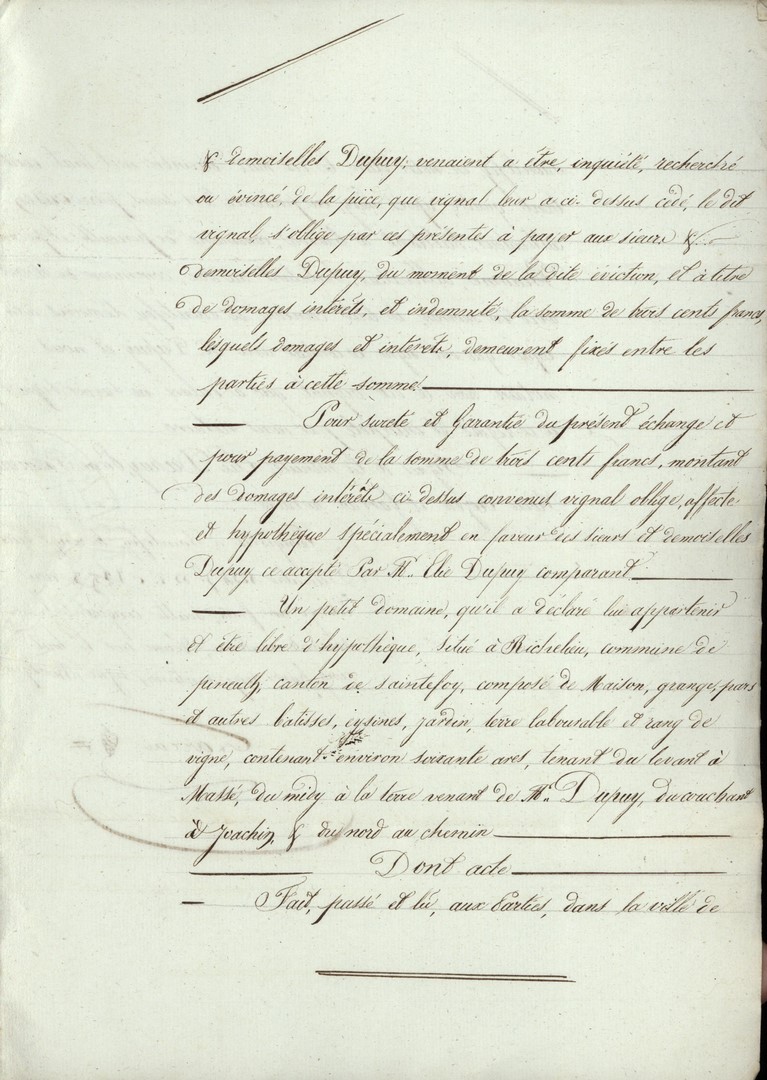 & demoiselles Dupuy, venaient a être, inquiété, recherché
ou évincé, de la pièce, que vignal leur a ci-dessus cédé, le dit
vignal, s'oblige par ces présentes à payer aux sieurs &
demoiselles Dupuy, du moment de la dite éviction, et à titre
de domages intérêts, et indemnité, la somme de trois cents francs,
lesquels domages et intérêts, demeurent fixés entre les
parties à cette somme
Pour sureté et Garantie du présent échange et
pour payement de la somme de trois cents francs, montant
des domages intérêts ci-dessus convenus vignal oblige, affecte
et hypothèque spécialement en faveur des sieurs et demoiselles
Dupuy ce accepté Par Mr. Elie Dupuy comparant
Un petit domaine, qu'il a déclaré lui appartenir
et être libre d'hypothèque, situé à Richelieu, commune de
pineuilh, canton de saintefoy, composé de Maison, grange, parc
et autres batisses, eysines, jardin, terre labourable et rang de
vigne, contenant environ soixante ares, tenant du levant à
Massé, du midy à la terre venant de Mr. Dupuy, du couchant
à Joachin, & du nord au chemin
Dont acte
Fait, passé et lu, aux Parties, dans la ville de